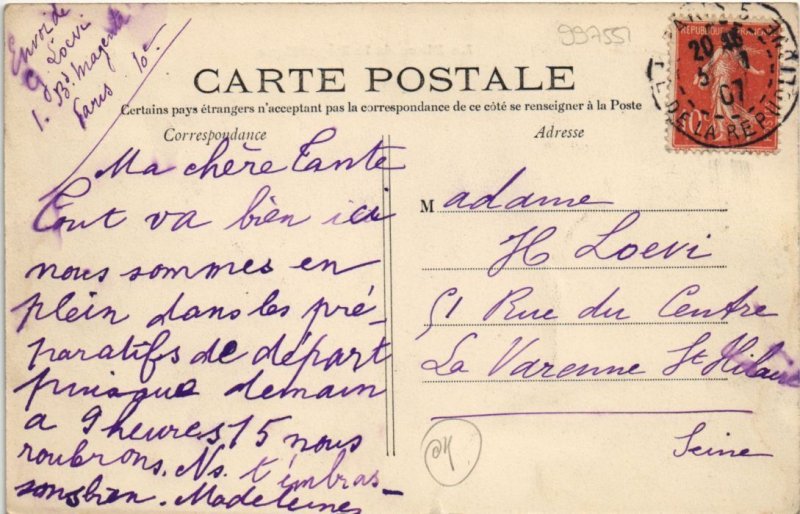 Envoi de
Loevi
1. Bd Magenta
Paris 10e
997551
CARTE POSTALE
Certains pays étrangers n'acceptant pas la correspondance de ce côté se renseigner à la Poste
Correspondance
Adresse
Ma chère Tante
Tout va bien ici
nous sommes en
plein dans les pré-
paratifs de départ
puisque demain
a 9 heures 15 nous
roulerons. Ns. t'embras-
sons bien. Madeleine
Madame
H Loevi
51 Rue du Centre
La Varenne St Hilaire
Seine
REPUBLIQUE FRANÇAISE
10c
PARIS 5
20 45
07
DE LA REPUBLIQUE